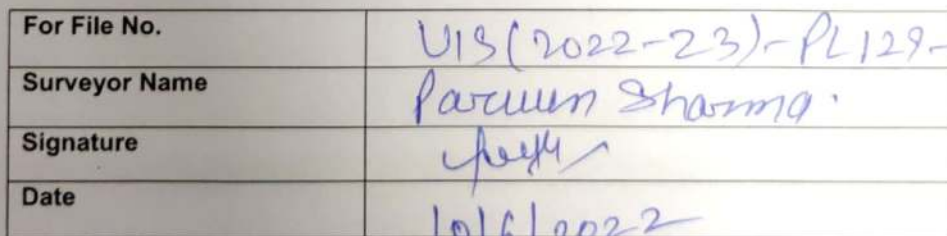 For File No. VIS(2022-23)-PL129-
Surveyor Name Parveen Sharma.
Signature
Date 10/6/2022